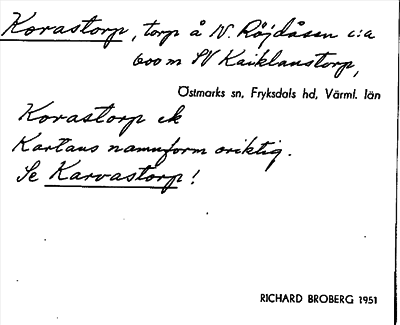 Korastorp, torp å N. Röjdåsen c:a
600 m SV Kaiklanstorp,
Östmarks sn, Fryksdals hd, Värml. län
Korastorp ek
Kartans namnform oriktig.
Se Karvastorp!
RICHARD BROBERG 1951